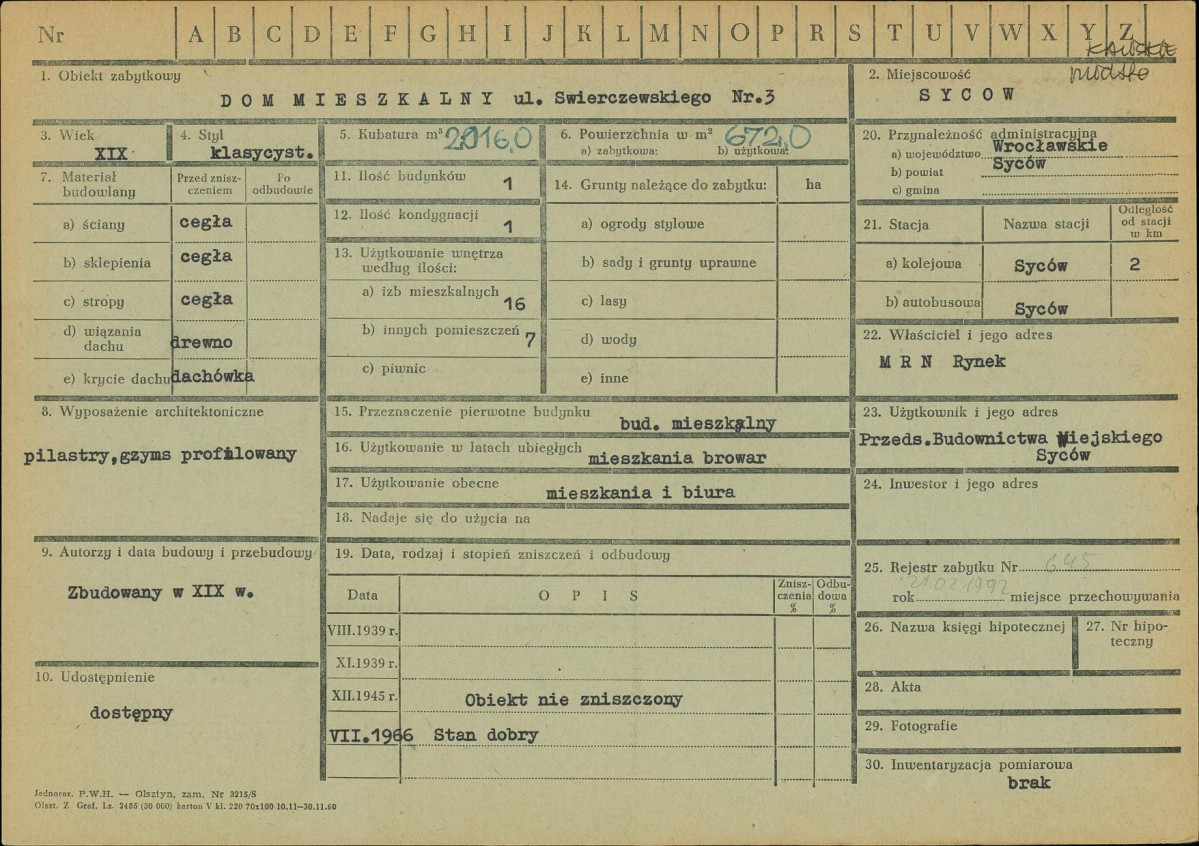 Nr A B C D E F G H I J K L M N O P R S T U V W X Y Z
1. Obiekt zabytkowy
DOM MIESZKALNY ul. Swierczewskiego Nr.3
2. Miejscowość
SYCOW
3. Wiek
XIX
4. Styl
klasycyst.
5. Kubatura m³ 2016,0
6. Powierzchnia w m² 672,0
a) zabytkowa: b) użytkowa:
20. Przynależność administracyjna
a) województwo Wrocławskie
b) powiat Syców
c) gmina
7. Materiał budowlany
Przed znisz-
czeniem
Po
odbudowie
a) ściany cegła
b) sklepienia cegła
c) stropy cegła
d) wiązania
dachu drewno
e) krycie dachu dachówka
11. Ilość budynków 1
12. Ilość kondygnacji 1
13. Użytkowanie wnętrza
według ilości:
a) izb mieszkalnych 16
b) innych pomieszczeń 7
c) piwnic
14. Grunty należące do zabytku: ha
a) ogrody stylowe
b) sady i grunty uprawne
c) lasy
d) wody
e) inne
21. Stacja Nazwa stacji
Odległość
od stacji
w km
a) kolejowa Syców 2
b) autobusowa Syców
22. Właściciel i jego adres
M R N Rynek
8. Wyposażenie architektoniczne
pilastry,gzyms profilowany
15. Przeznaczenie pierwotne budynku
bud. mieszkalny
16. Użytkowanie w latach ubiegłych
mieszkania browar
17. Użytkowanie obecne
mieszkania i biura
18. Nadaje się do użycia na
23. Użytkownik i jego adres
Przeds.Budownictwa Miejskiego
Syców
24. Inwestor i jego adres
9. Autorzy i data budowy i przebudowy
Zbudowany w XIX w.
10. Udostępnienie
dostępny
19. Data, rodzaj i stopień zniszczeń i odbudowy
Data OPIS
Znisz-
czenia
%
Odbu-
dowa
%
VIII.1939 r.
XI.1939 r.
XII.1945 r. Obiekt nie zniszczony
VII.1966 Stan dobry
25. Rejestr zabytku Nr 645
rok 21.02.1992 miejsce przechowywania
26. Nazwa księgi hipotecznej
27. Nr hipo-
teczny
28. Akta
29. Fotografie
30. Inwentaryzacja pomiarowa
brak
Jednoraz. P.W.H. — Olsztyn, zam. Nr 3215/S
Olszt. Z. Graf. Lz. 2485 (30 000) karton V kl. 220 70x100 10.11—30.11.60